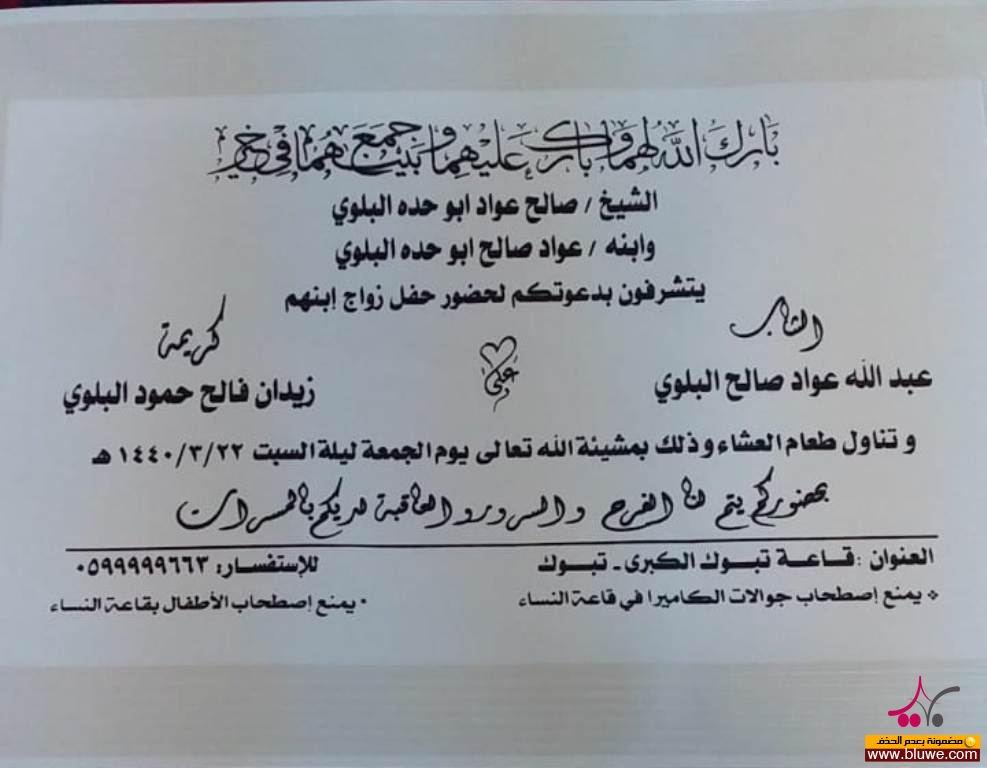 بارك الله لهما وبارك عليهما وجمع بينهما في خير
الشيخ / صالح عواد ابو حده البلوي
وابنه / عواد صالح ابو حده البلوي
يتشرفون بدعوتكم لحضور حفل زواج إبنهم
الشاب
عبد الله عواد صالح البلوي
على
كريمة
زيدان فالح حمود البلوي
و تناول طعام العشاء وذلك بمشيئة الله تعالى يوم الجمعة ليلة السبت ١٤٤٠/٣/٢٢ هـ
بحضوركم يتم لنا الفرح والسرور والعاقبة لديكم بالمسرات
العنوان : قاعة تبوك الكبرى - تبوك
للإستفسار: ٠٥٩٩٩٩٩٦٦٣
* يمنع إصطحاب جوالات الكاميرا في قاعة النساء
• يمنع إصطحاب الأطفال بقاعة النساء
مضمونة بعدم الحذف
www.bluwe.com